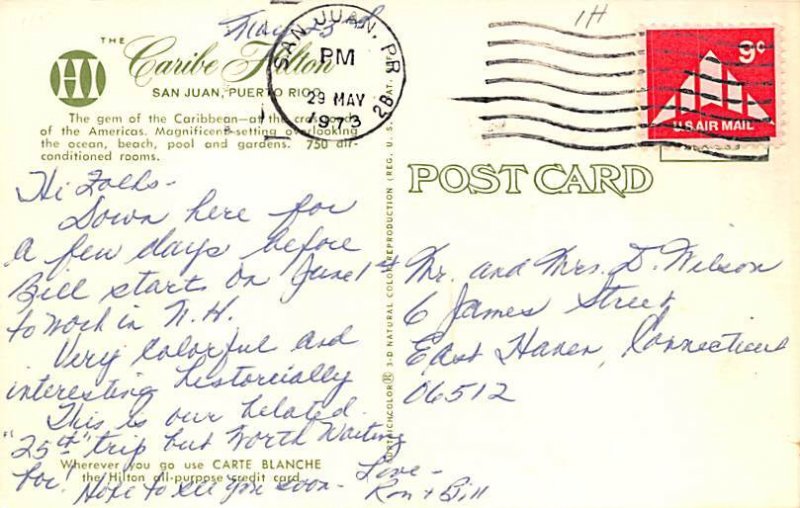 May 28
THE
Caribe Hilton
HI
SAN JUAN, PUERTO RICO
The gem of the Caribbean—at the crossroads
of the Americas. Magnificent setting overlooking
the ocean, beach, pool and gardens. 750 air-
conditioned rooms.
Hi Folks-
Down here for
a few days before
Bill starts on June 1st
to work in N.H.
Very Colorful and
interesting historcially
This is our belated
"25th" trip but Worth Waiting
for! Hope to see you soon-
Love-
Ron + Bill
Wherever you go use CARTE BLANCHE
the Hilton all-purpose credit card
3-D NATURAL COLOR REPRODUCTION (REG. U.S. PAT.
SAN JUAN, PR
PM
29 MAY
1973
2B
1H
9c
U.S. AIR MAIL
POST CARD
Mr. and Mrs. D. Wilson
6 James Street
East Haven, Connecticut
06512